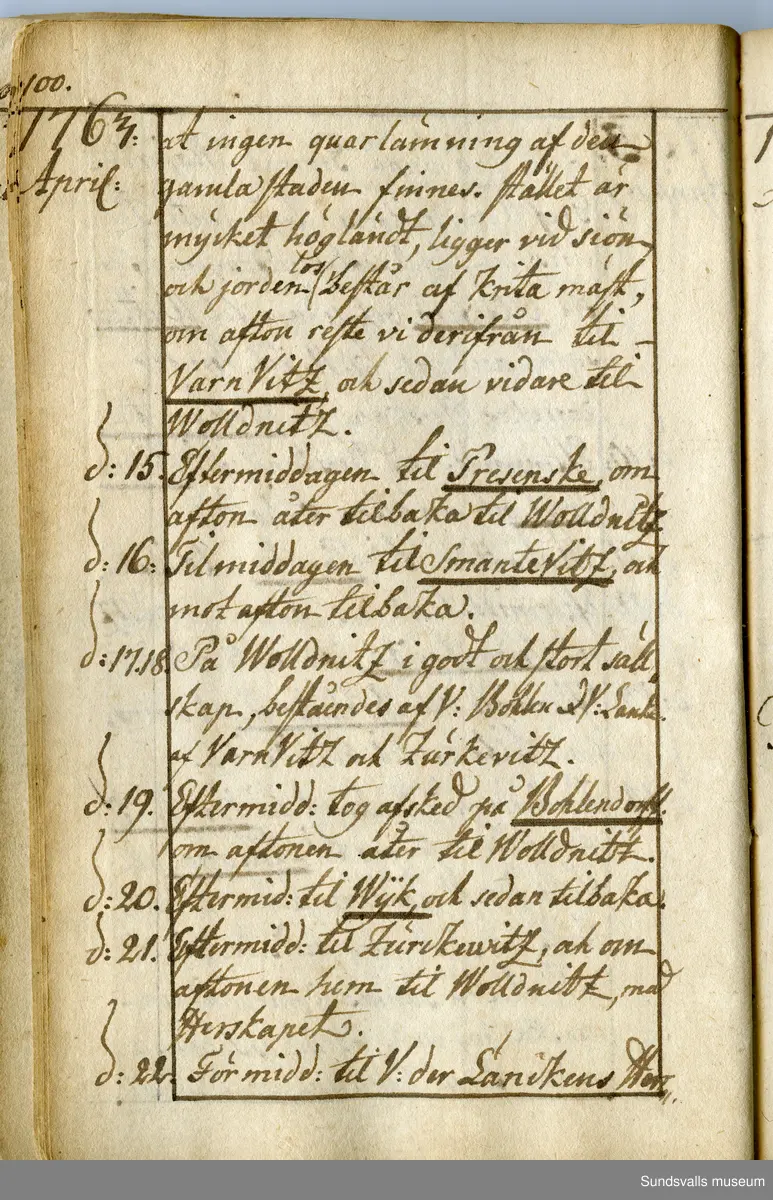 100.
1763:
April:
at ingen quarlämning af den
gamla staden finnes. stället är
mycket högländt, ligger vid siön
och jorden los består af Krita mäst,
om afton reste vi derifrån til
VarnVitz, och sedan vidare til
Wolldnitz.
d: 15. Eftermiddagen til Presenske, om
afton åter tilbaka til Wolldnitz
d: 16: Til middagen til SmanteVitz, och
mot afton tilbaka.
d: 17.18. På Wolldnitz i godt och stort säll
skap, beståendes af V: Bohlen d V: Lanke.
af VarnVitz och Zürkevitz.
d: 19. Eftermidd: tog afsked på Bohlendorff.
om aftonen åter til Wolldnitz.
d: 20. Eftermid: til Wÿk, och sedan tilbaka.
d: 21. Eftermidd: til Zürckewitz, och om
aftonen hem til Wolldnitz, med
Herskapet.
d: 22. Förmidd: til V: der Länckens
Sundsvalls museum